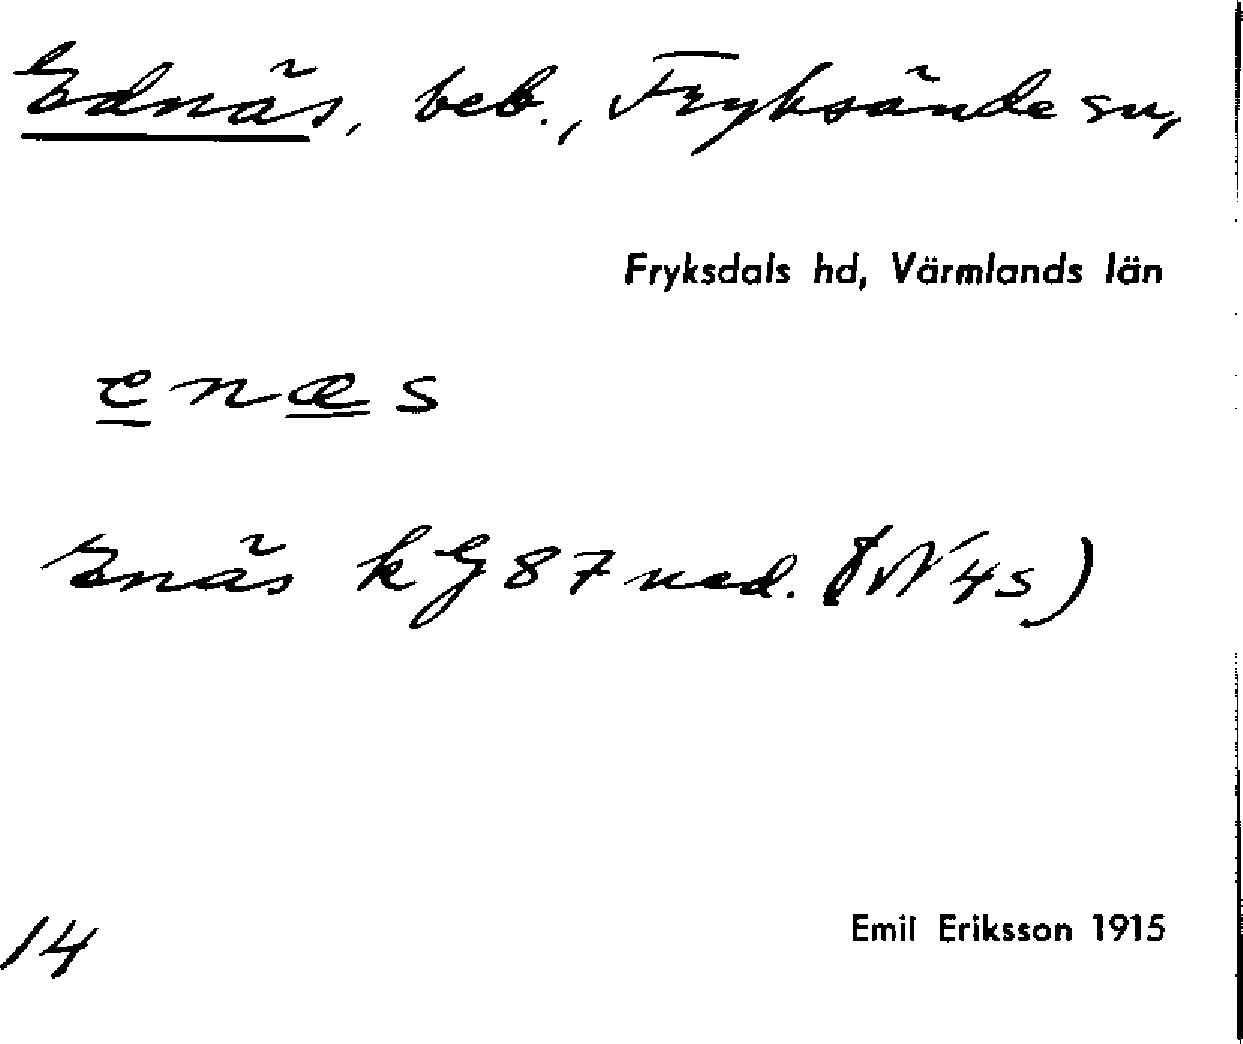 Ednäs, beb., Fryksände sn,
Fryksdals hd, Värmlands län
enæs
Enäs kG 87 ned. (N 4s)
14
Emil Eriksson 1915